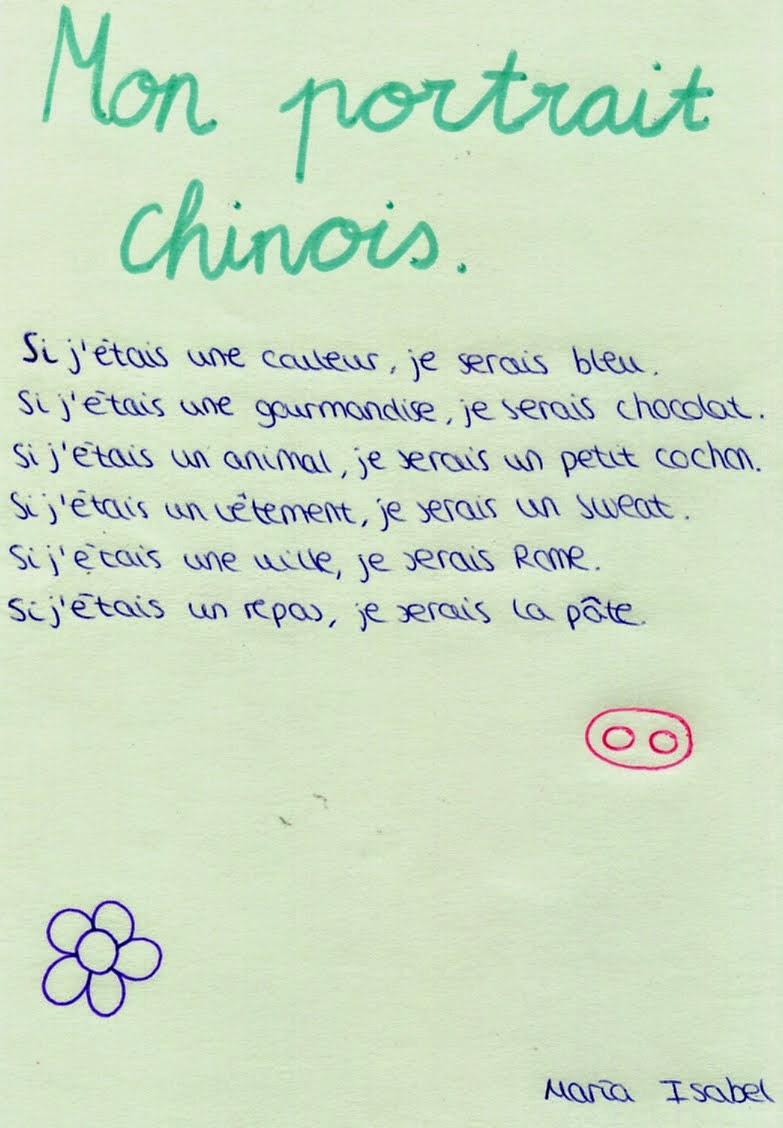 Mon portrait
chinois.
Si j'étais une couleur, je serais bleu.
Si j'étais une gourmandise, je serais chocolat.
Si j'étais un animal, je serais un petit cochon.
Si j'étais un vêtement, je serais un sweat.
Si j'étais une ville, je serais Rome.
Si j'étais un repas, je serais la pâte.
María Isabel